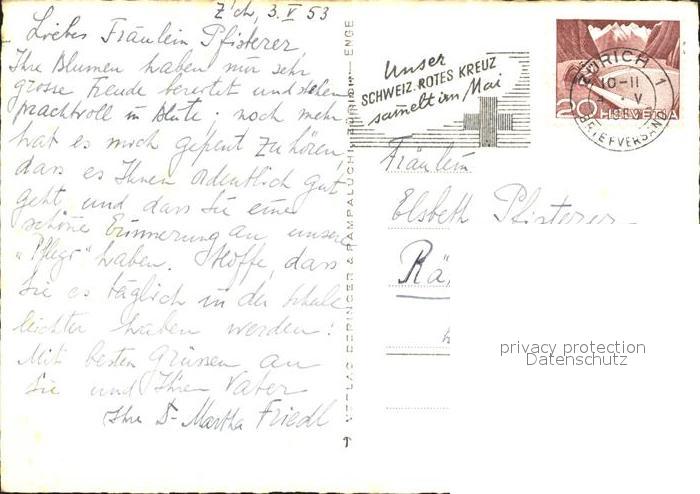 Z'ch, 3. V 53
Liebes Fräulein Pfisterer,
Ihre Blumen haben mir sehr
grosse Freude bereitet und stehen
prachtvoll in Blüte; noch mehr
hat es mich gefreut zu hören,
dass es Ihnen ordentlich gut
geht und dass Sie eine
schöne Erinnerung an unsere
"Pflege" haben. Hoffe, dass
Sie es täglich in der Schule
leichter haben werden!
Mit besten Grüssen an
Sie und Ihren Vater
Ihre Dr Martha Friedl
VERLAG BERINGER & PAMPALUCHI ZÜRICH - ENGE
Unser
SCHWEIZ. ROTES KREUZ
samelt im Mai
ZÜRICH 1
10-11
V
BRIEFVERSAND
20 HELVETIA
Fräulein
Elsbeth Pfisterer
Rä
privacy protection
Datenschutz